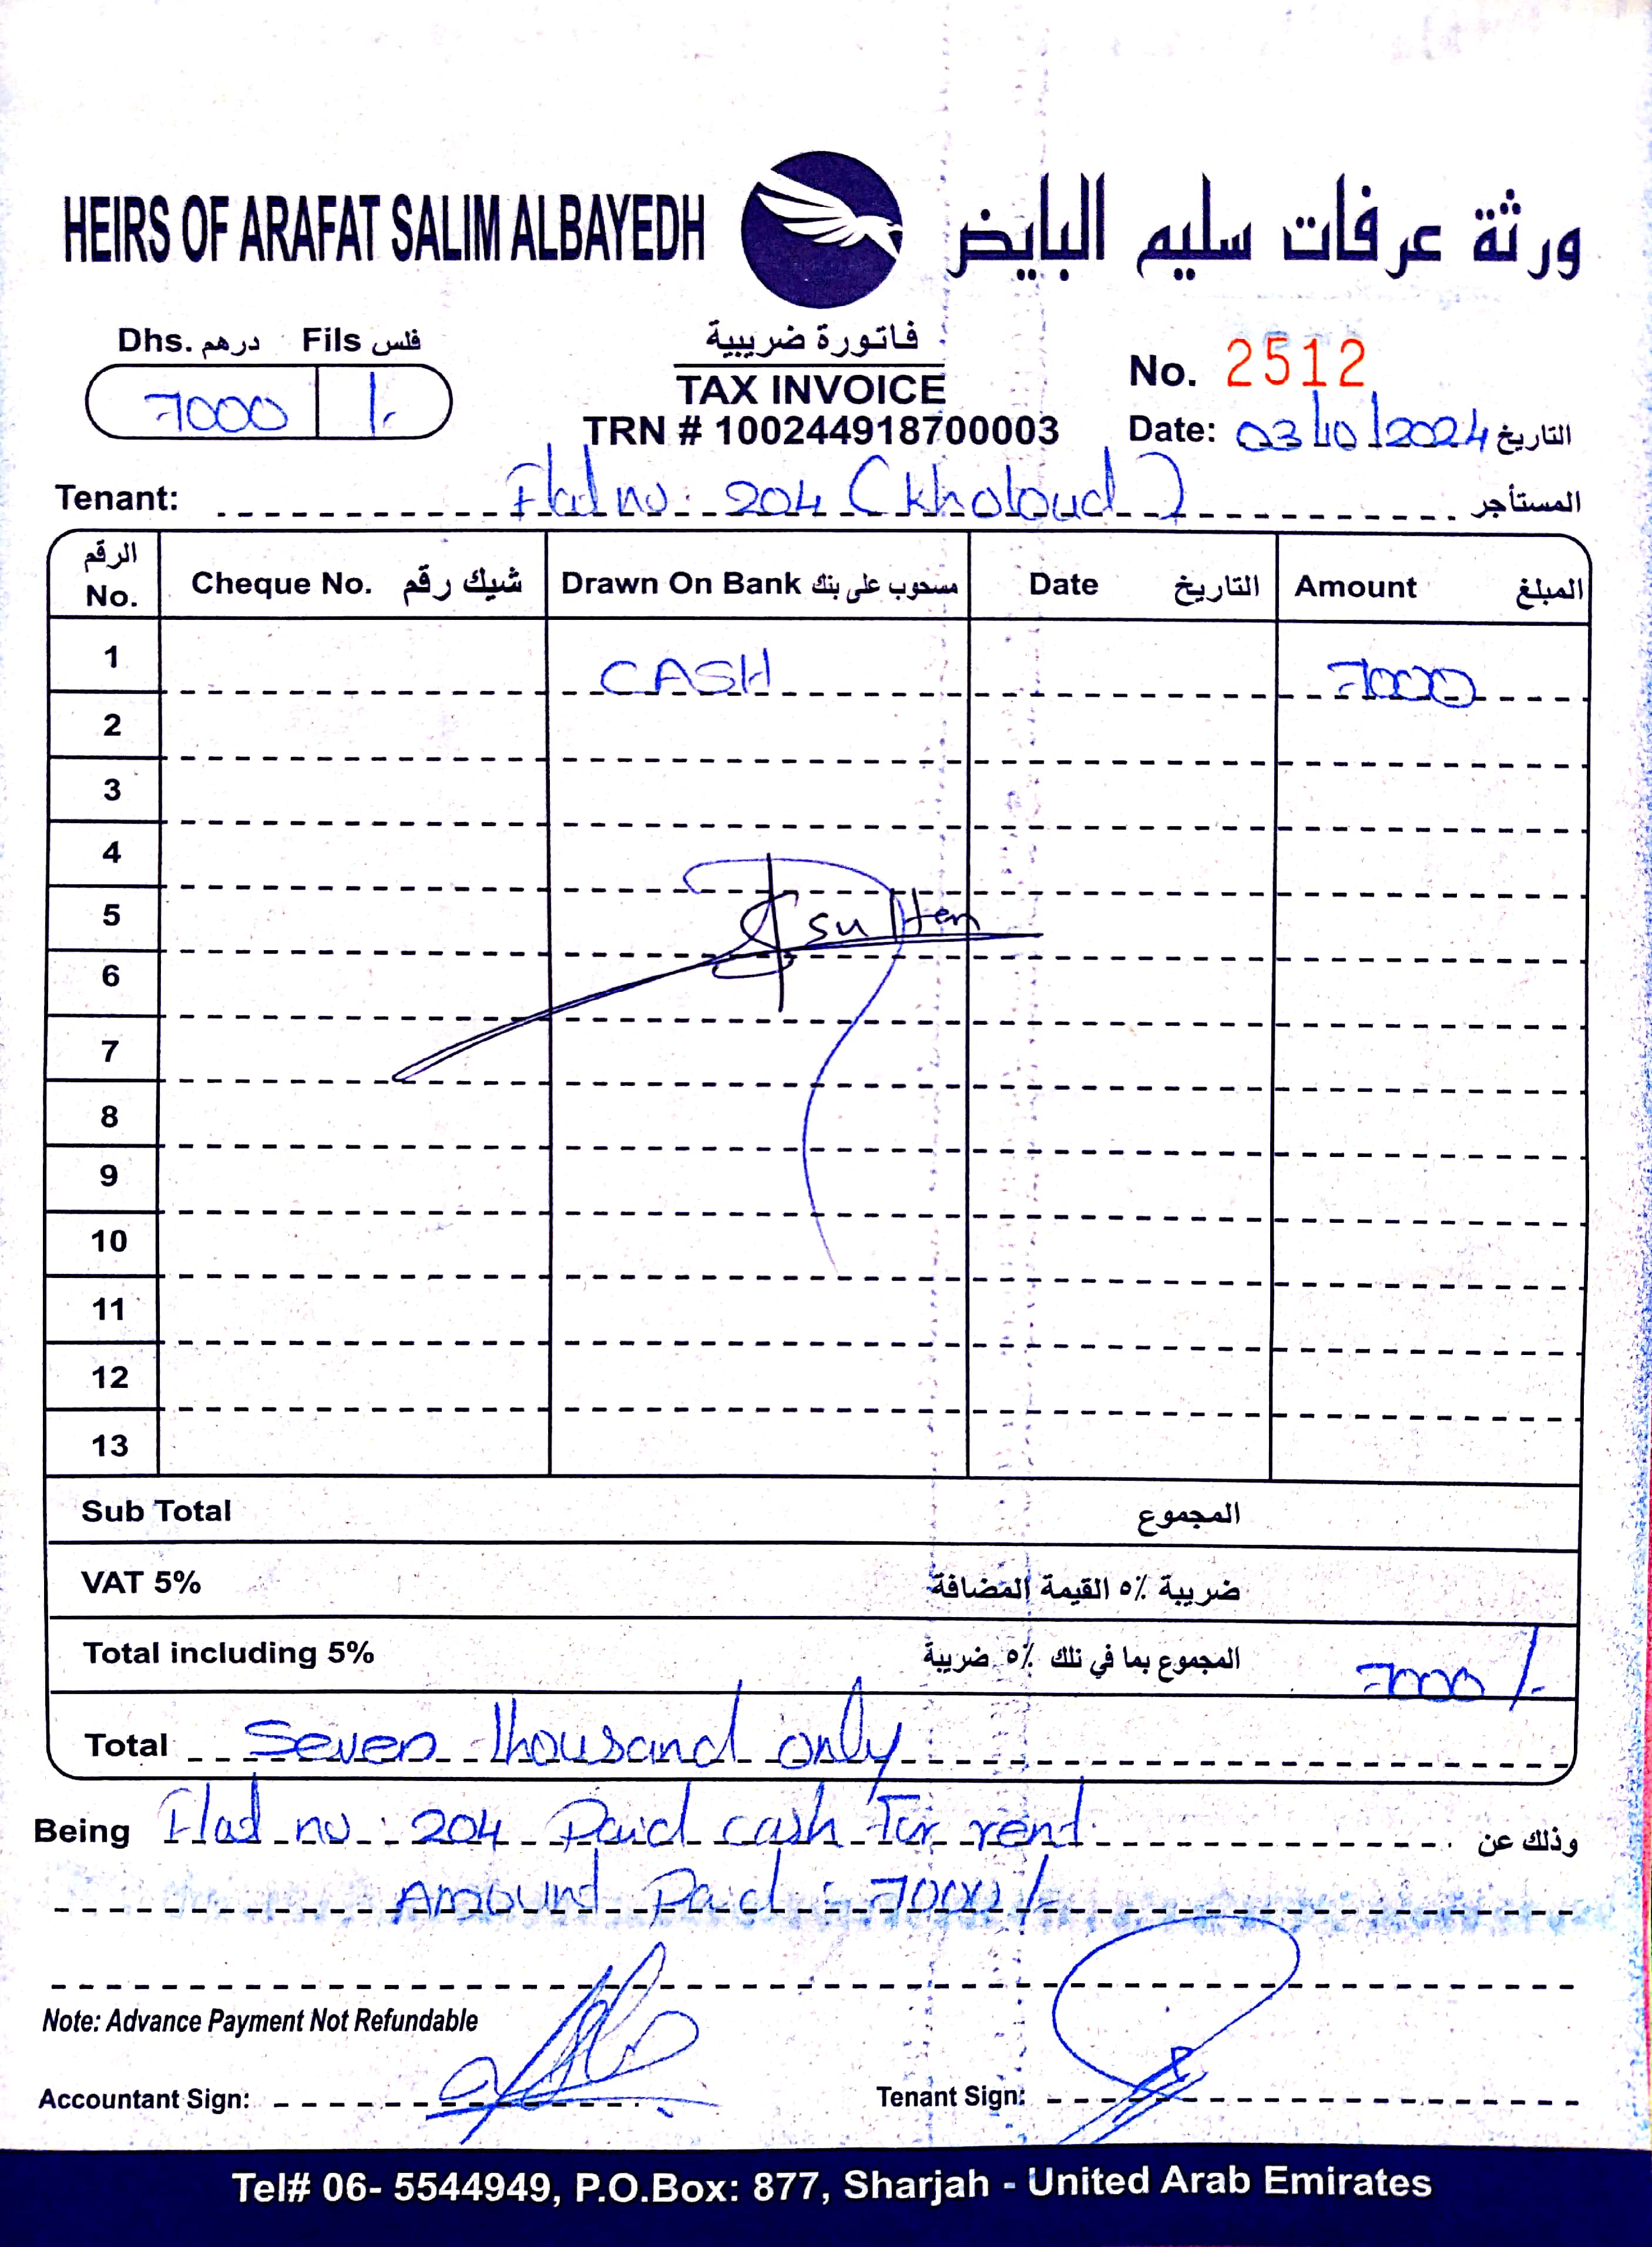 HEIRS OF ARAFAT SALIM ALBAYEDH ورثة عرفات سليم البايض
Dhs. درهم Fils فلس
7000 /-
فاتورة ضريبية
TAX INVOICE
TRN # 100244918700003
No. 2512
Date: 03/10/2024 التاريخ
Tenant: Flat no: 204 (Kholoud) المستأجر
الرقم No. Cheque No. شيك رقم Drawn On Bank مسحوب على بنك Date التاريخ Amount المبلغ
1 CASH 7000
2
3
4
5 sultan
6
7
8
9
10
11
12
13
Sub Total المجموع
VAT 5% ضريبة ٥٪ القيمة المضافة
Total including 5% المجموع بما في تلك ٥٪ ضريبة 7000/-
Total Seven thousand only
Being Flat no: 204 Paid cash For rent وذلك عن
Amount Paid: 7000/-
Note: Advance Payment Not Refundable
Accountant Sign: Tenant Sign:
Tel# 06- 5544949, P.O.Box: 877, Sharjah - United Arab Emirates